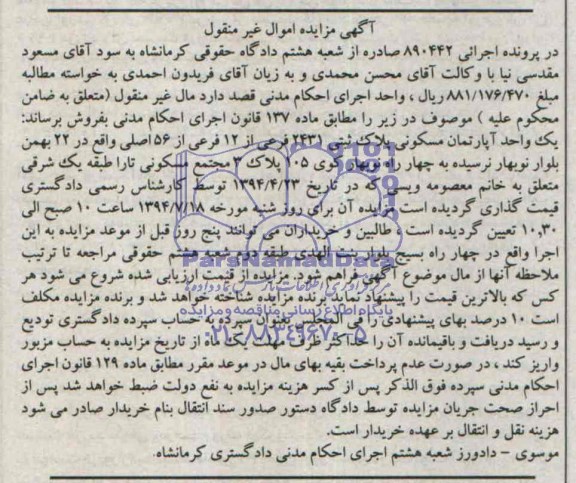 آگهی مزایده اموال غیر منقول
در پرونده اجرائی ۸۹۰۴۴۲ صادره از شعبه هشتم دادگاه حقوقی کرمانشاه به سود آقای مسعود
مقدسی نیا با وکالت آقای محسن محمدی و به زیان آقای فریدون احمدی به خواسته مطالبه
مبلغ ۸۸۱/۱۷۶/۴۷۰ ریال ، واحد اجرای احکام مدنی قصد دارد مال غیر منقول (متعلق به ضامن
محکوم علیه ) موصوف در زیر را مطابق ماده ۱۳۷ قانون اجرای احکام مدنی بفروش برساند:
یک واحد آپارتمان مسکونی پلاک ثبتی ۲۴۳۱ فرعی از ۱۲ فرعی از ۵۶ اصلی واقع در ۲۲ بهمن
بلوار نوبهار نرسیده به چهار راه نوبهار کوی ۱۰۵ پلاک ۳ مجتمع مسکونی تارا طبقه یک شرقی
متعلق به خانم معصومه ویسی که در تاریخ ۱۳۹۴/۴/۲۳ توسط کارشناس رسمی دادگستری
قیمت گذاری گردیده است مزایده آن برای روز شنبه مورخه ۱۳۹۴/۷/۱۸ ساعت ۱۰ صبح الی
۱۰,۳۰ تعیین گردیده است ، طالبین و خریداران می توانند پنج روز قبل از موعد مزایده به این
اجرا واقع در چهار راه بسیج بلوار بنت الهدی طبقه دوم شعبه هشتم حقوقی مراجعه تا ترتیب
ملاحظه آنها از مال موضوع آگهی فراهم شود. مزایده از قیمت ارزیابی شده شروع می شود هر
کس که بالاترین قیمت را پیشنهاد نماید برنده مزایده شناخته خواهد شد و برنده مزایده مکلف
است ۱۰ درصد بهای پیشنهادی را فی المجلس بعنوان سپرده به حساب سپرده دادگستری تودیع
و رسید دریافت و باقیمانده آن را حداکثر ظرف مهلت یک ماه از تاریخ مزایده به حساب مزبور
واریز کند ، در صورت عدم پرداخت بقیه بهای مال در موعد مقرر مطابق ماده ۱۲۹ قانون اجرای
احکام مدنی سپرده فوق الذکر پس از کسر هزینه مزایده به نفع دولت ضبط خواهد شد پس از
احراز صحت جریان مزایده توسط دادگاه دستور صدور سند انتقال بنام خریدار صادر می شود
هزینه نقل و انتقال بر عهده خریدار است.
موسوی - دادورز شعبه هشتم اجرای احکام مدنی دادگستری کرمانشاه
ParsNamadData
پایگاه اطلاع رسانی مناقصه و مزایده
۰۲۱-۸۸۳۴۹۶۷۰-۵